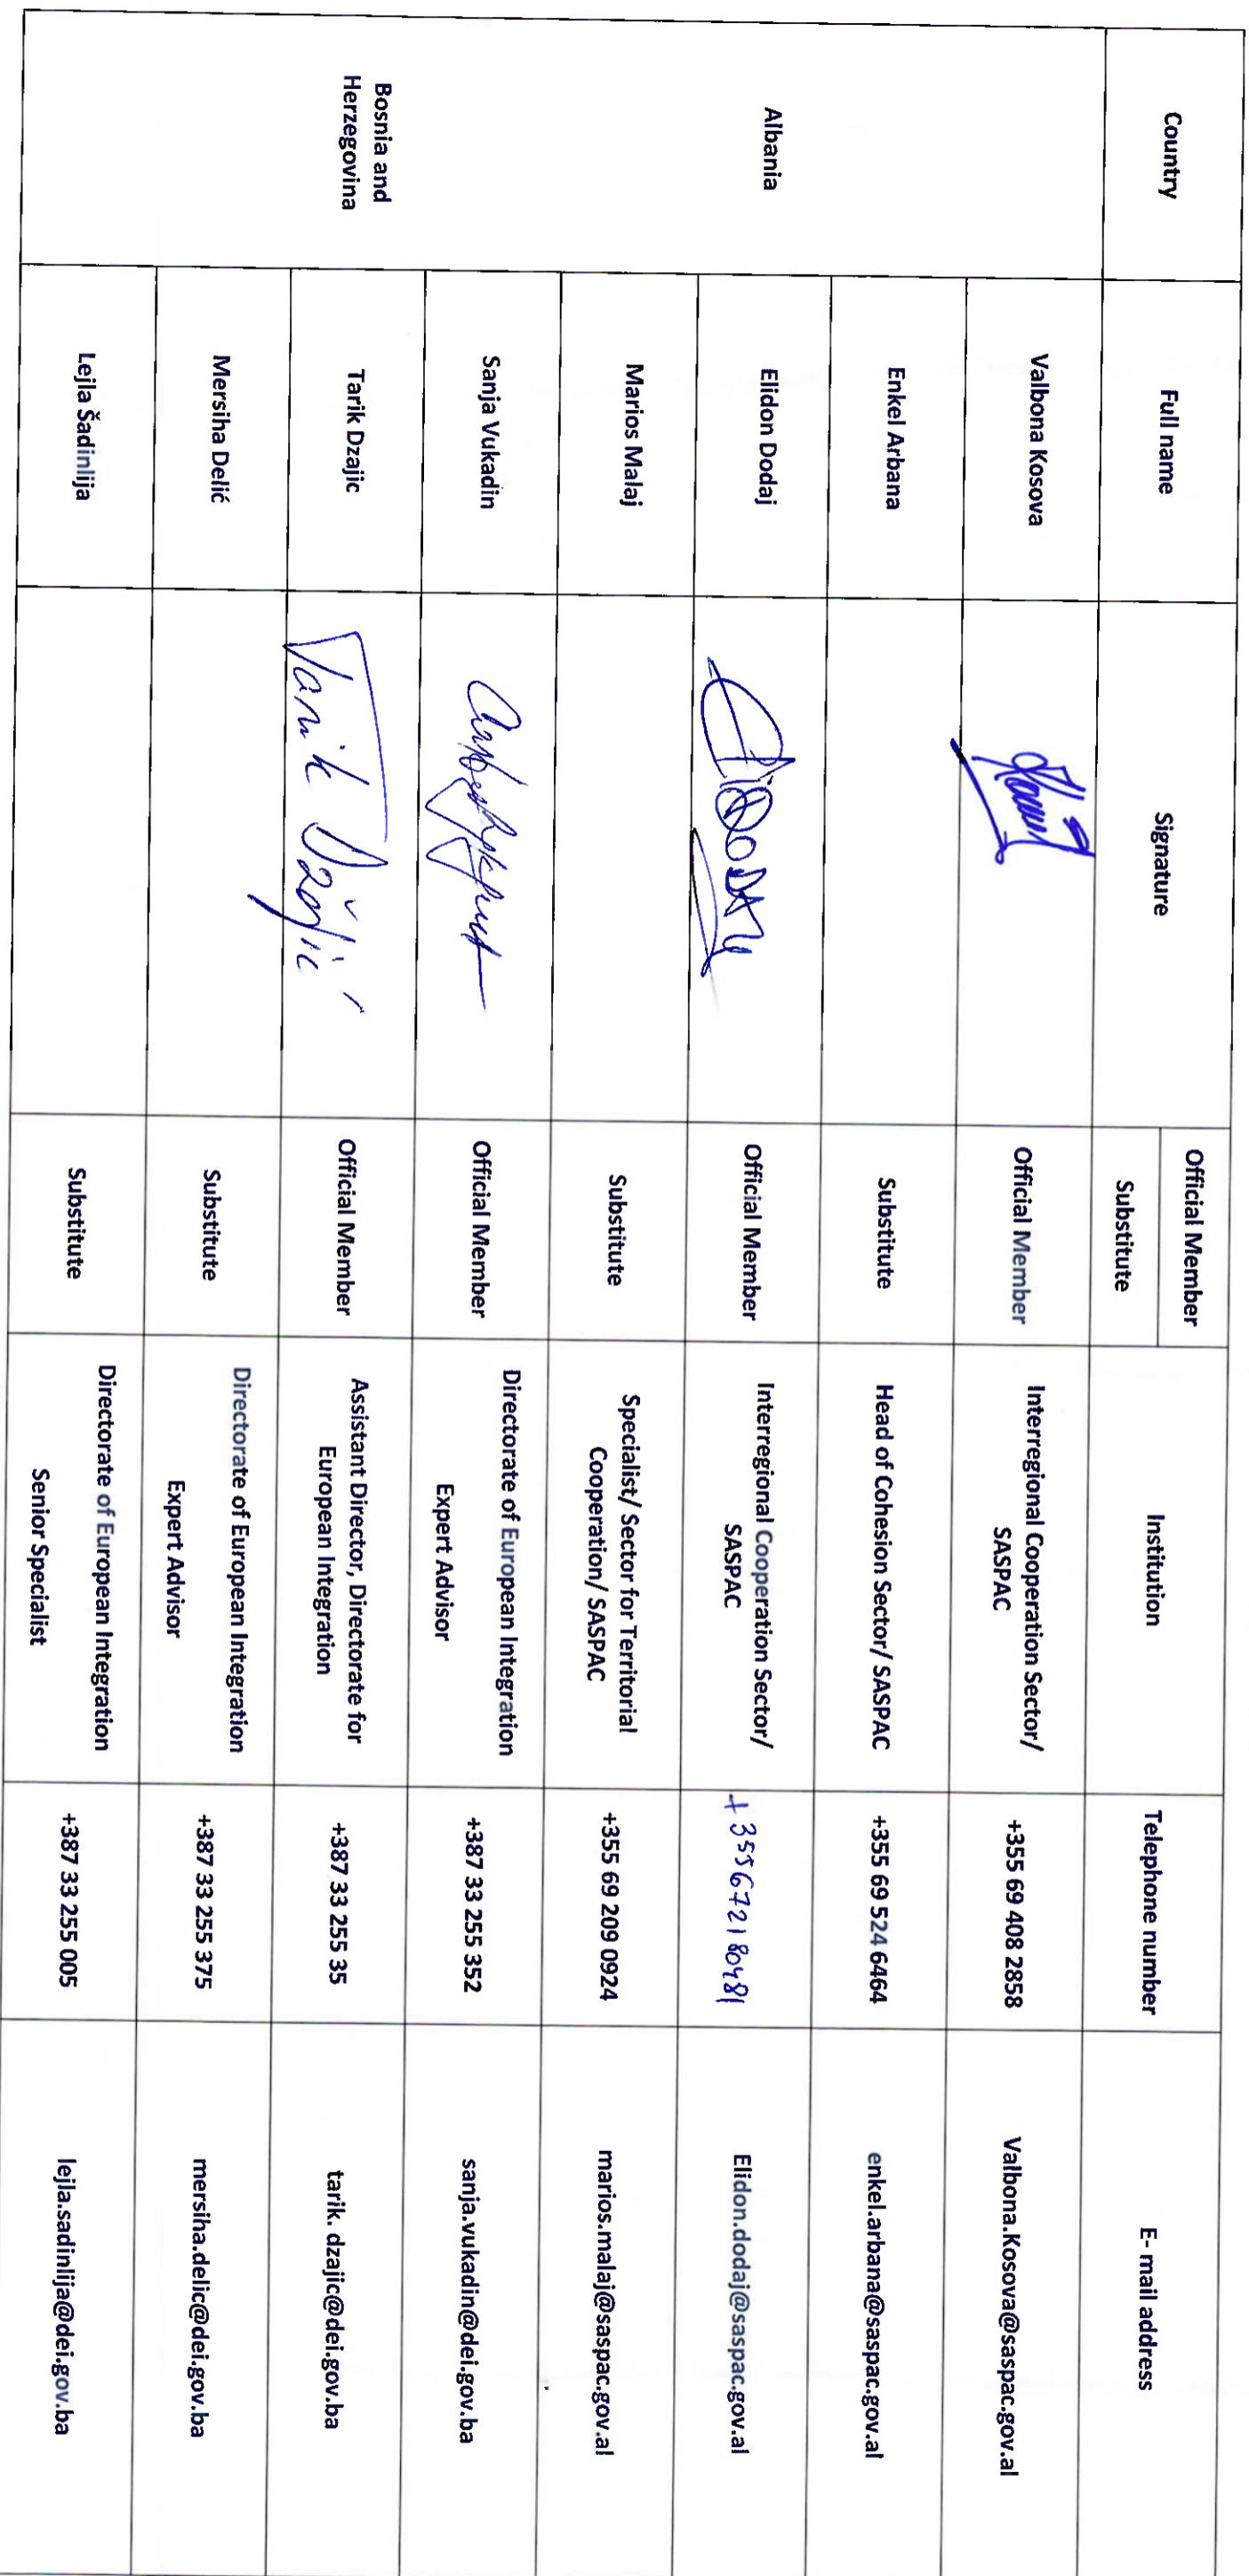 Country
Full name
Signature
Official Member
Substitute
Institution
Telephone number
E- mail address
Albania
Valbona Kosova
Official Member
Interregional Cooperation Sector/
SASPAC
+355 69 408 2858
Valbona.Kosova@saspac.gov.al
Enkel Arbana
Substitute
Head of Cohesion Sector/ SASPAC
+355 69 524 6464
enkel.arbana@saspac.gov.al
Elidon Dodaj
Official Member
Interregional Cooperation Sector/
SASPAC
+355672180481
Elidon.dodaj@saspac.gov.al
Marios Malaj
Substitute
Specialist/ Sector for Territorial
Cooperation/ SASPAC
+355 69 209 0924
marios.malaj@saspac.gov.al
Bosnia and
Herzegovina
Sanja Vukadin
Official Member
Directorate of European Integration
Expert Advisor
+387 33 255 352
sanja.vukadin@dei.gov.ba
Tarik Dzajic
Tarik Džajić
Official Member
Assistant Director, Directorate for
European Integration
+387 33 255 35
tarik. dzajic@dei.gov.ba
Mersiha Delić
Substitute
Directorate of European Integration
Expert Advisor
+387 33 255 375
mersiha.delic@dei.gov.ba
Lejla Šadinlija
Substitute
Directorate of European Integration
Senior Specialist
+387 33 255 005
lejla.sadinlija@dei.gov.ba